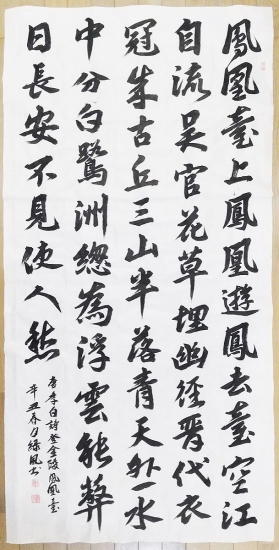 鳳凰臺上鳳凰遊鳳去臺空江
自流吴宫花草埋幽徑晉代衣
冠成古丘三山半落青天外一水
中分白鷺洲總為浮雲能蔽
日長安不見使人愁
唐李白詩登金陵鳳凰臺
辛丑春月緑風書